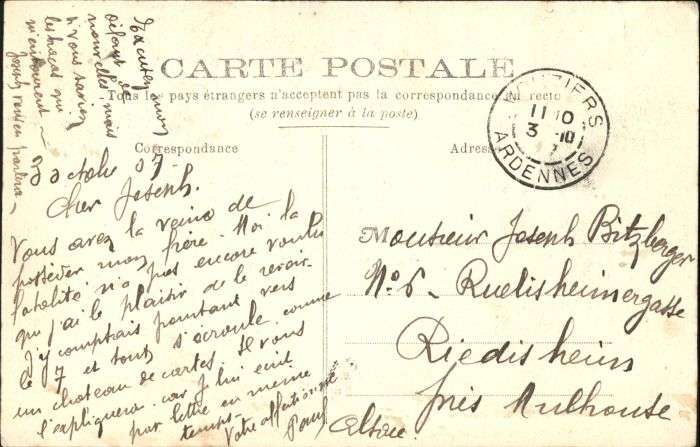 CARTE POSTALE
Tous les pays étrangers n'acceptent pas la correspondance au recto
(se renseigner à la poste)
Correspondance
Adresse
VOUZIERS
11 10
3 -10
ARDENNES
Excusez mon
défaut de
nouvelles mais
si vous saviez
les tracas qui
m'entourent
Joseph vous en parlera
3 octobre 07
Cher Joseph.
Vous avez la veine de
posséder mon frère. Moi la
fatalité n'a pas encore voulu
que j'ai le plaisir de le revoir.
J'y comptais pourtant vers
le 7 et tout s'écroule comme
un chateau de cartes. Il vous
l'expliquera car je lui écrit
par lettre en meme
temps.
Votre affectionné
Paul
Monsieur Joseph Bitzberger
No 6 - Ruelisheimergasse
Riedisheim
près Mulhouse
Alsace.